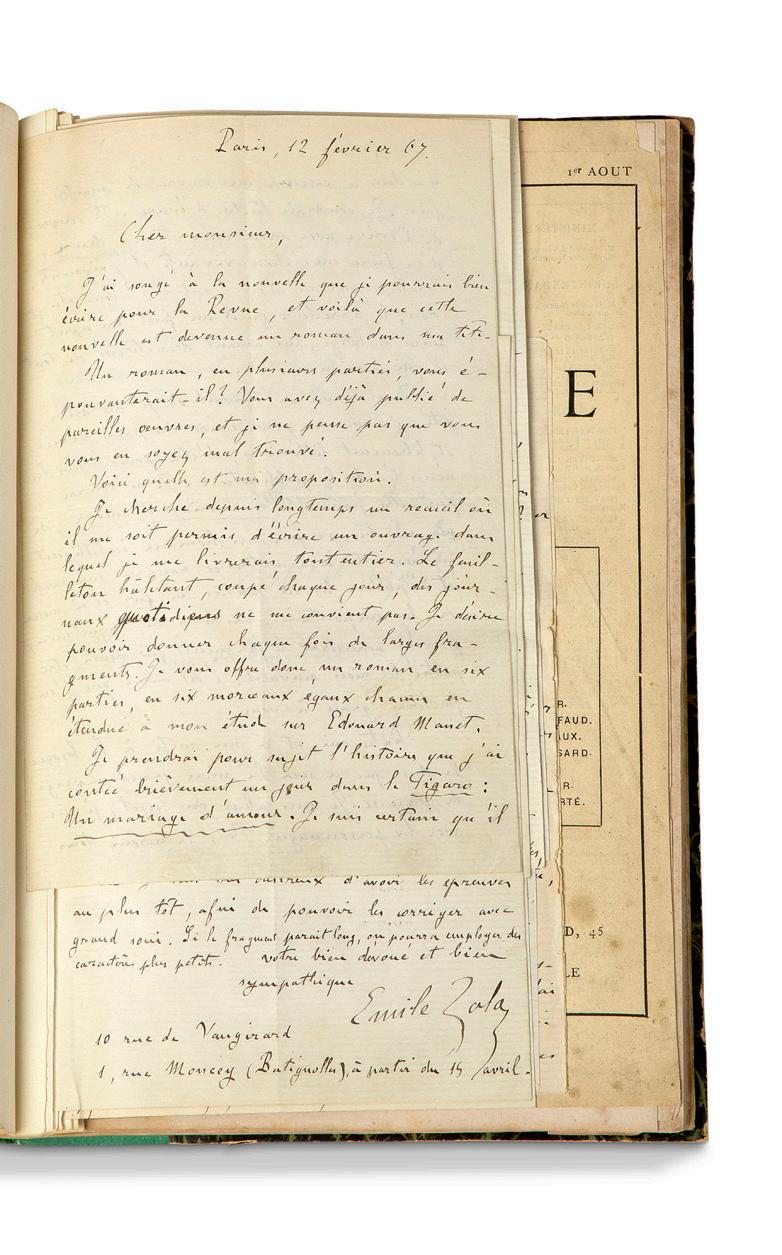 Paris, 12 février 67.
Cher monsieur,
J'ai songé à la nouvelle que je pourrais bien
écrire pour la Revue, et voilà que cette
nouvelle est devenue un roman dans ma tête.
Un roman, en plusieurs parties, vous é-
pouvanterait-il? Vous avez déjà publié de
pareilles œuvres, et je ne pense pas que vous
vous en soyez mal trouvé.
Voici quelle est ma proposition.
Je cherche depuis longtemps un recueil où
il me soit permis d'écrire un ouvrage dans
lequel je me livrerais tout entier. Le feuil-
leton haletant, coupé chaque jour, des jour-
naux quotidiens ne me convient pas. Je désire
pouvoir donner chaque fois de larges fra-
gments. Je vous offre donc un roman en six
parties, en six morceaux égaux chacun en
étendue à mon étude sur Edouard Manet.
Je prendrai pour sujet l'histoire que j'ai
contée brièvement un jour dans le Figaro :
Un mariage d'amour. Je suis certain qu'il
désireux d'avoir les épreuves
au plus tôt, afin de pouvoir les corriger avec
grand soin. Si le fragment paraît long, on pourra employer des
caractères plus petits. votre bien dévoué et bien
sympathique
Emile Zola
10 rue de Vaugirard
1, rue Moncey (Batignolles), à partir du 15 avril.
1er AOUT
E
R.
FAUD.
AUX.
SARD.
R.
RTÉ.
D, 45
LE